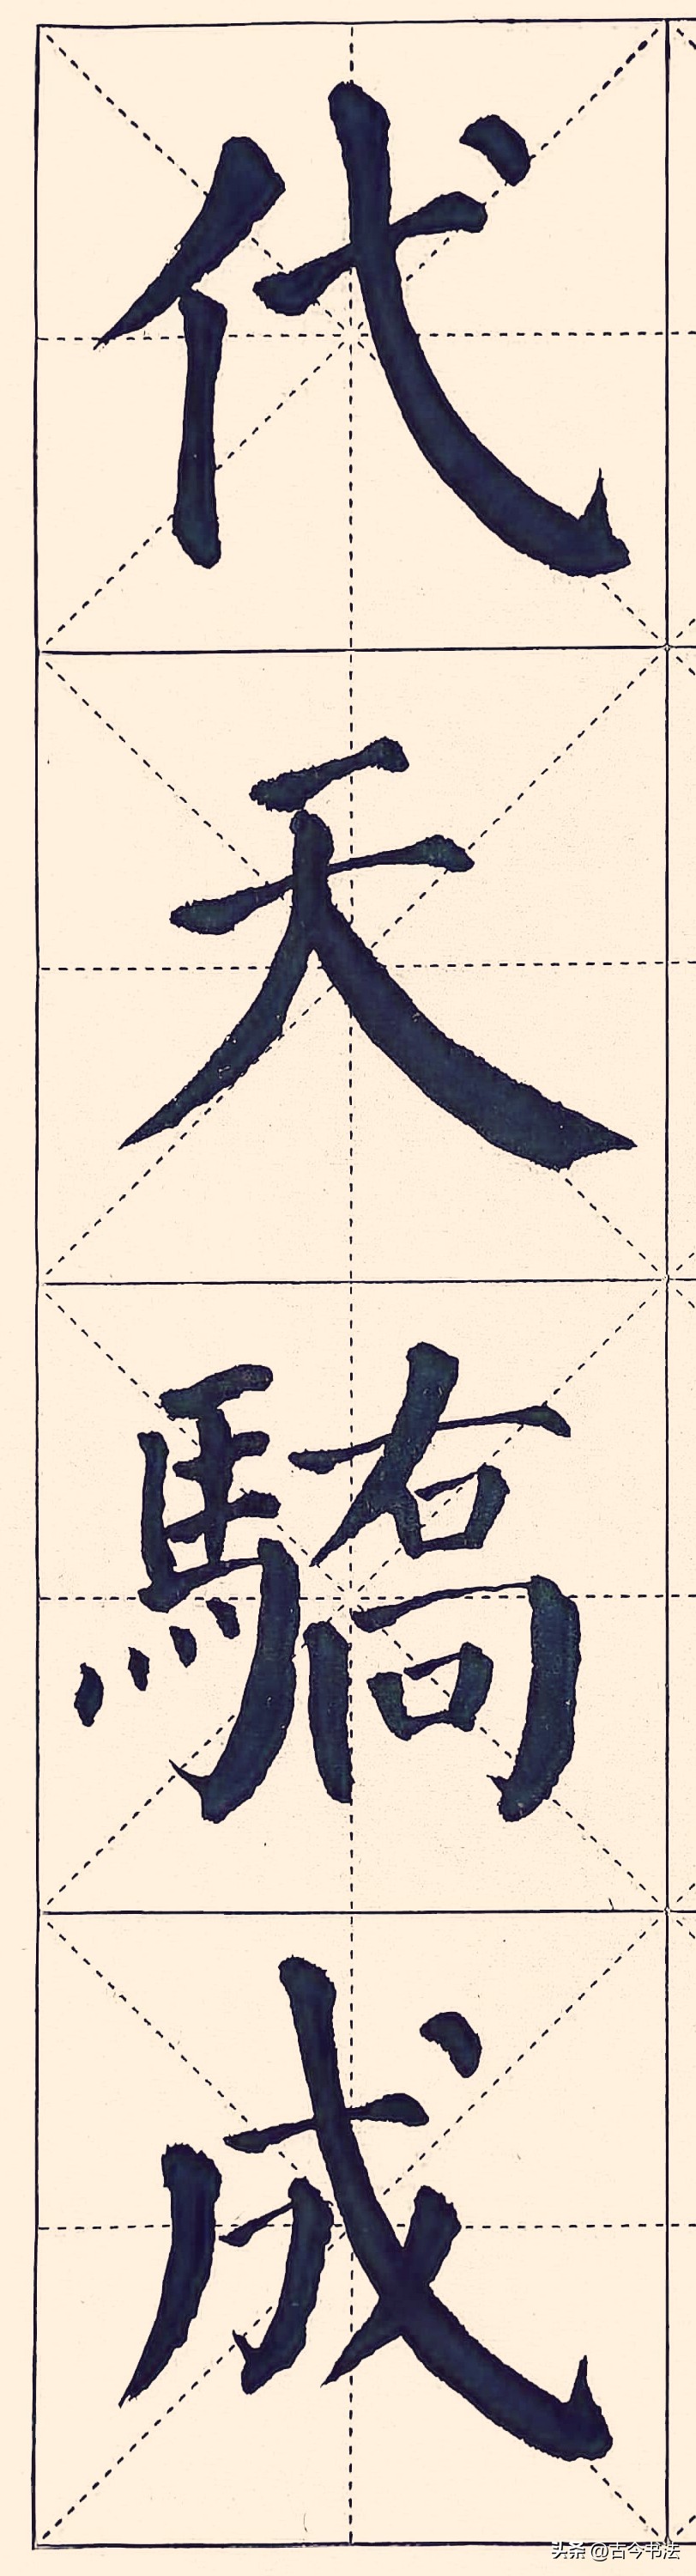 代天驕成
头条 @古今书法